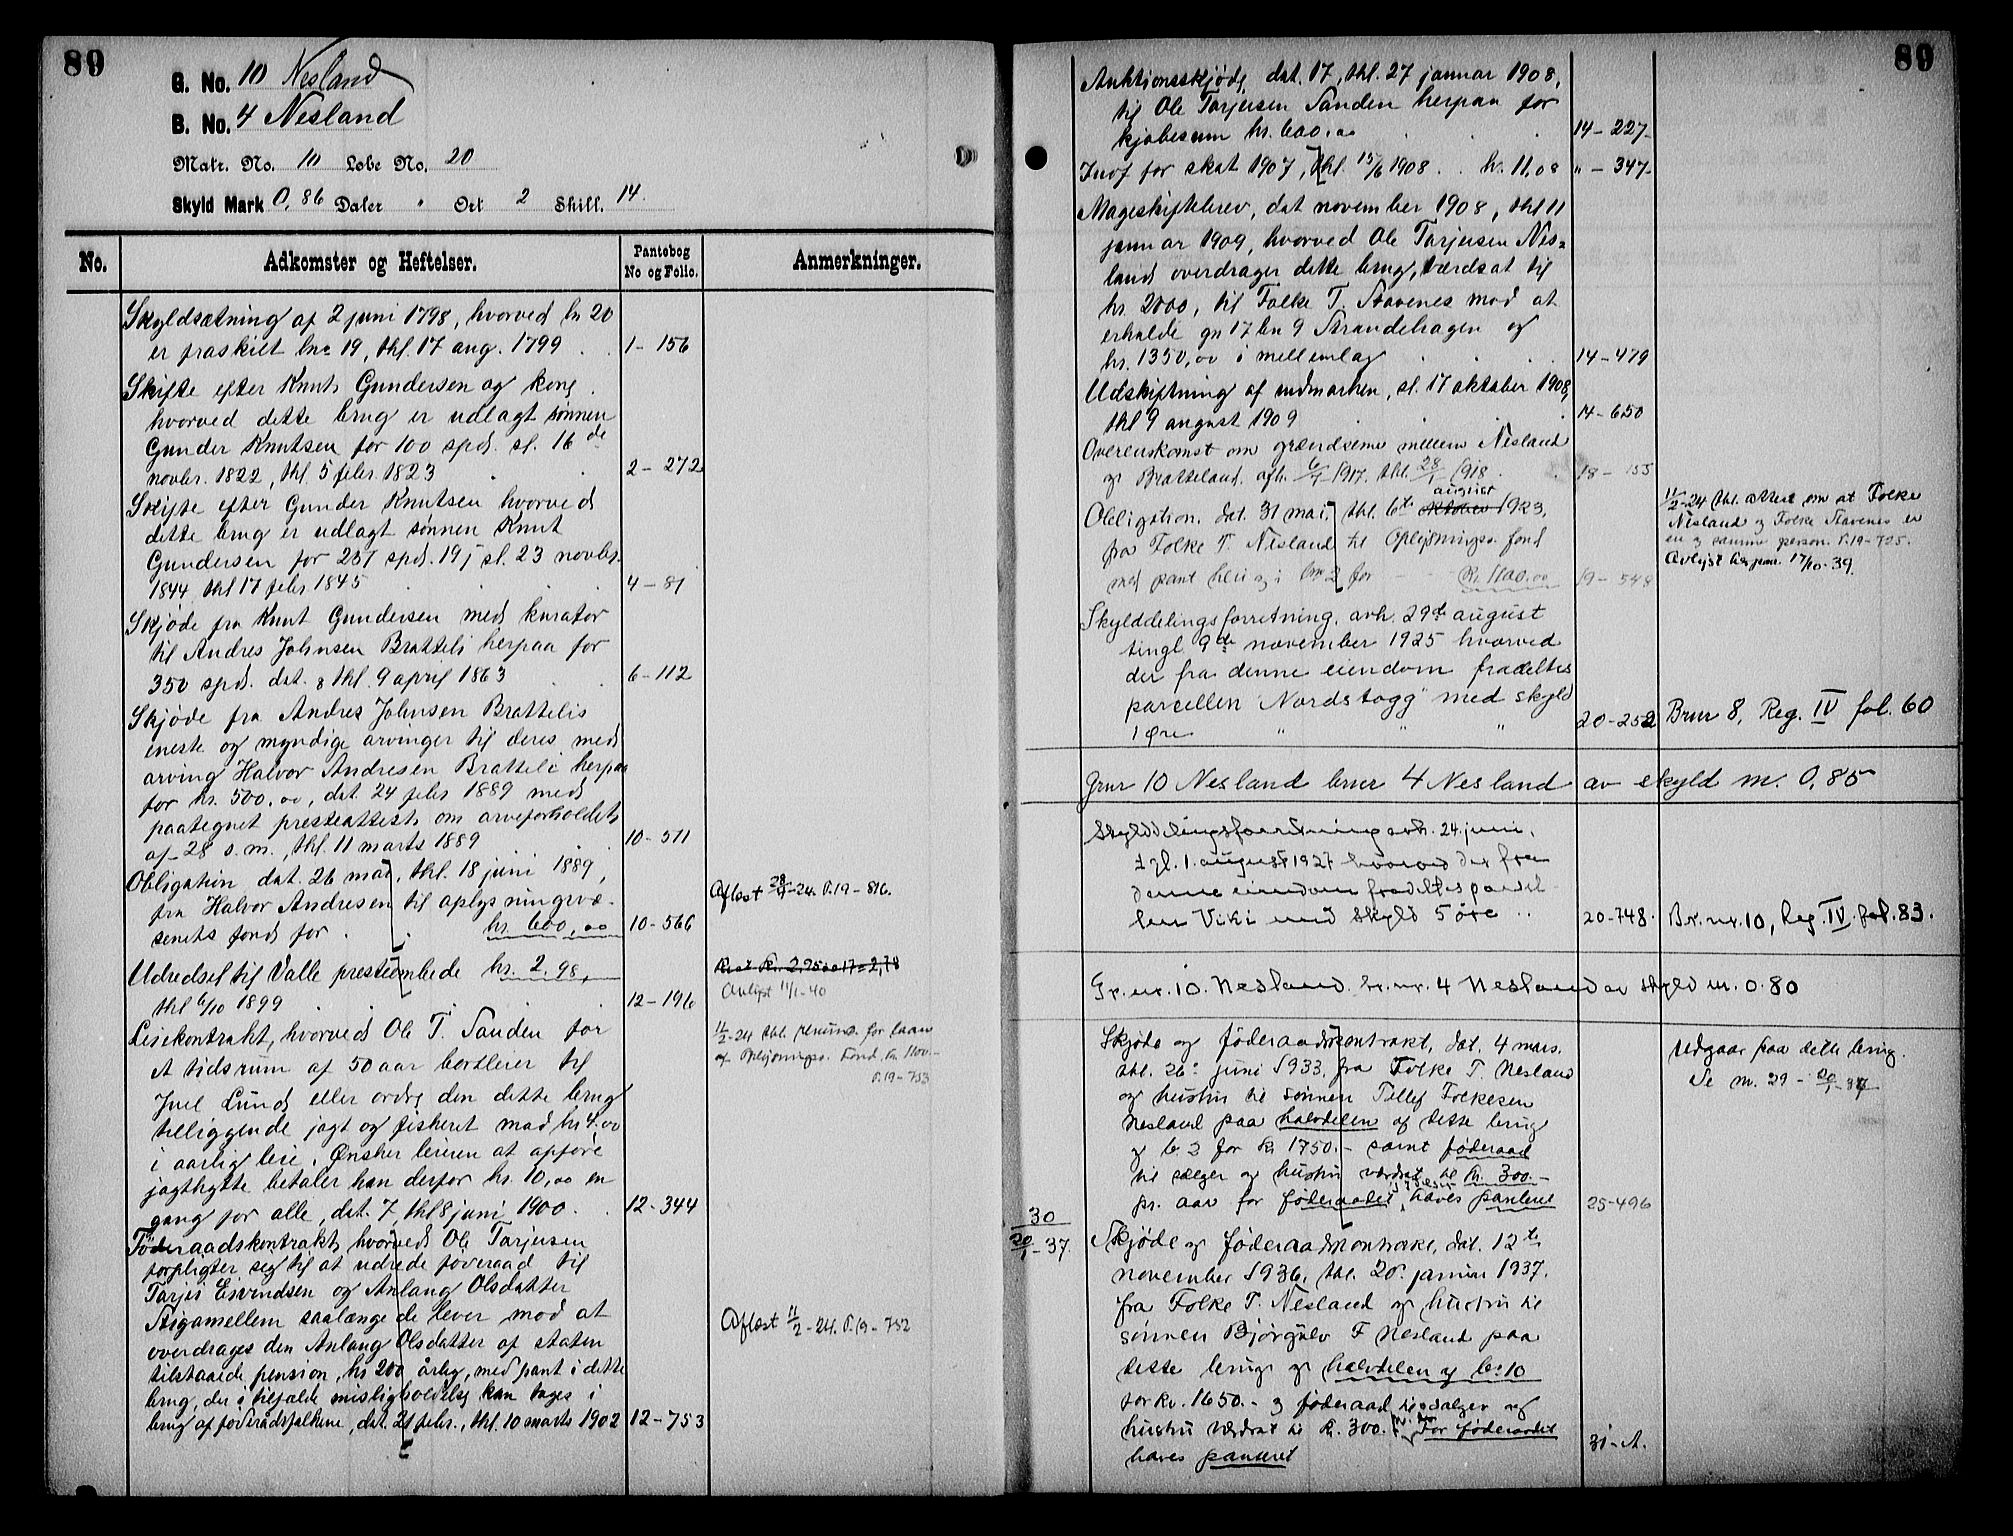 89
G. No. 10 Nesland
B. No. 4 Nesland
Matr. No. 10 Løbe No. 20
Skyld Mark 0,86 Daler " Ort 2 Skill. 14.
No.
Adkomster og Heftelser.
Pantebog
No og Folio.
Anmerkninger.
Skyldsætning af 2 juni 1798, hvorved ln 20
er fraskilt lnr 19, thl. 17 aug. 1799 . . 1 - 156
Skifte efter Knut Gundersen og kone
hvorved dette brug er udlagt sønnen
Gunder Knutsen for 100 spd. sl. 16de
novbr. 1822, thl. 5 febr. 1823 2 - 272
Skifte efter Gunder Knutsen hvorved
dette brug er udlagt sønnen Knut
Gundersen for 251 spd. 19 j sl. 23 novbr.
1844 thl 17 febr 1845 4 - 81
Skjøde fra Knut Gundersen med kurator
til Andres Johnsen Bratteli herpaa for
350 spd. dat. & thl. 9 april 1863 6 - 112
Skjøde fra Andres Johnsen Brattelis
eneste og myndige arvinger til deres med
arving Halvor Andresen Bratteli herpaa
for kr. 500,00, dat. 24 febr 1889 med
paategnet presteattest om arveforholdet
af 28 s. m., thl. 11 marts 1889 10 - 511
Obligation dat. 26 mai, thl. 18 juni 1889,
fra Halvor Andresen til oplysningsvæ-
senets fond for . . kr. 600,00 10 - 566
Afløst 28/4-24. P.19 - 816.
Udredsel til Valle presteembede kr. 2,98,
thl 6/10 1899 . . 12 - 196
Avlyst 11/1-40
Leiekontrakt, hvorved Ole T. Sanden for
et tidsrum af 50 aar bortleier til
Juel Lund eller ordre den dette brug
tilliggende jagt og fiskeret mod kr 4.00
i aarlig leie. Ønsker leieren at opføre
jagthytte betaler han derfor kr. 10,00 en
gang for alle, dat. 7, thl 8 juni 1900 . . 12 - 344
11/2-24 thl. for laan
af Oplysningsv. Fond kr 1100.-
P.19 - 753
Føderaadskontrakt, hvorved Ole Tarjeisen
forpligter seg til at udrede føderaad til
Tarjei Eivindsen og Anlaug Olsdatter
Stigamellem saalænge de lever mod at
overdrages den Anlaug Olsdatter af staten
tilstaaede pension, kr 200 årlig, med pant i dette
brug, der i tilfælde misligholdelse kan tages i
brug af føderådsfolkene, dat. 21 febr., thl. 10 marts 1902 12 - 753
Afløst 11/2-24. P.19 - 752
89
Auktionsskjøde, dat. 17, thl. 27 januar 1908,
til Ole Tarjeisen Sanden herpaa for
kjøbesum kr. 600.00 . . 14 - 227
Indf for skat 1907, thl. 15/6 1908 . . kr. 11,08 " - 347
Mageskiftebrev, dat november 1908, thl 11
januar 1909, hvorved Ole Tarjeisen Nes-
land overdrager dette brug, værdsat til
kr. 2000, til Folke T. Stavenes mod at
erholde gn 17 bn 9 Strandehagen og
kr. 1350,00 i mellemlag . . 14 - 479
Udskiftning af udmarken, sl. 17 oktober 1908,
thl 9 august 1909 . . 14 - 650
Overenskomst om grændserne mellem Nesland
og Bratteland. afh. 6/7 1917. thl. 28/1 1918 . 18 - 155
Obligation. dat. 31 mai, thl. 6te august 1923.
fra Folke T. Nesland til Oplysningsv. fond
med pant heri og i bnr 2 for - - Kr. 1100.00 19 - 548
11/2-24 thl. attest om at Folke
Nesland og Folke Stavenes er
en og samme person. P.19 - 705.
Avlyst 17/10-39.
Skylddelingsforretning. avh. 29de august
tingl. 9de november 1925 hvorved
der fra denne eiendom fradeltes
parcellen "Nordstogg" med skyld
1 øre " " " 20 - 252 Brnr 8, Reg. IV fol. 60
Grnr 10 Nesland brnr 4 Nesland av skyld m. 0,85
Skylddelingsforretning avh. 24. juni,
tgl. 1. august 1927 hvorved der fra
denne eiendom fradeltes parsel-
len Viki med skyld 5 øre .. 20-748. Br.nr.10, Reg. IV. fol. 83.
Gr.nr. 10. Nesland. br.nr. 4 Nesland av skyld m. 0.80
Skjøde og føderaadskontrakt, dat. 4 mars.
thl. 26. juni 1933, fra Folke T. Nesland
og hustru til sønnen Tellef Folkesen
Nesland paa halvdelen af dette brug
og b. 2 for Kr 1750.- samt føderaad
til sælger og hustru værdsat til Kr. 300.-
pr. aar for føderaadet haves panteret 25-496
Udgaar fra dette brug.
30
20/1-37.
Skjøde og føderaadskontrakt, dat. 12te
november 1936. thl. 20. januar 1937.
fra Folke T. Nesland og hustru til
sønnen Bjørgulv F Nesland paa
dette brug og halvdelen af br 10
for Kr. 1650.- og føderaad til sælger og
hustru værdsat til Kr. 300. For føderaadet
haves panteret 31 - A.